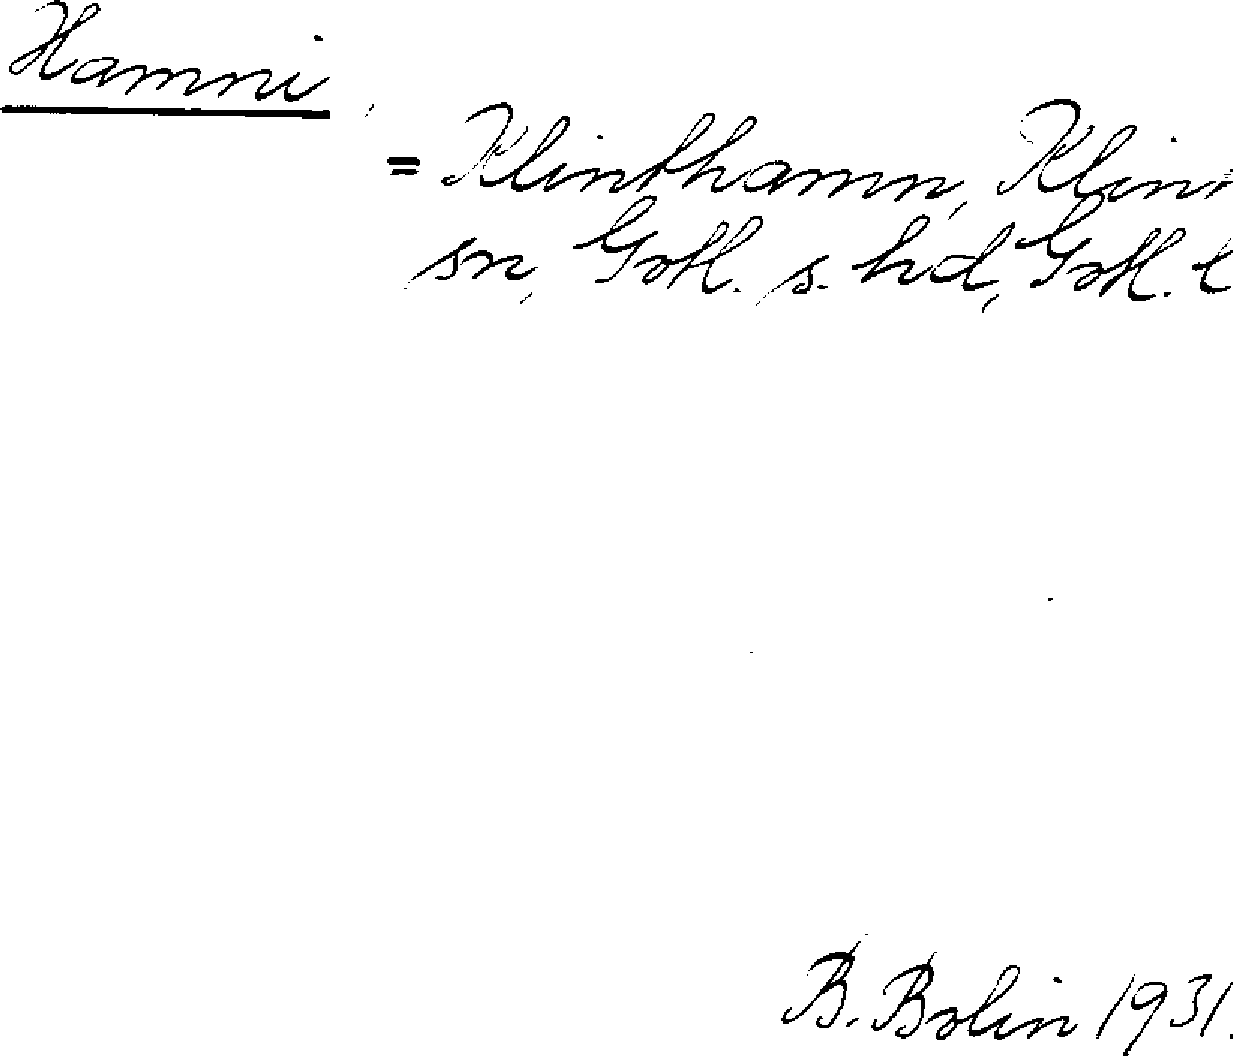 Hamni
= Klinthamn, Klin
sn, Gotl. s. hd, Gotl. l
B. Bolin 1931.